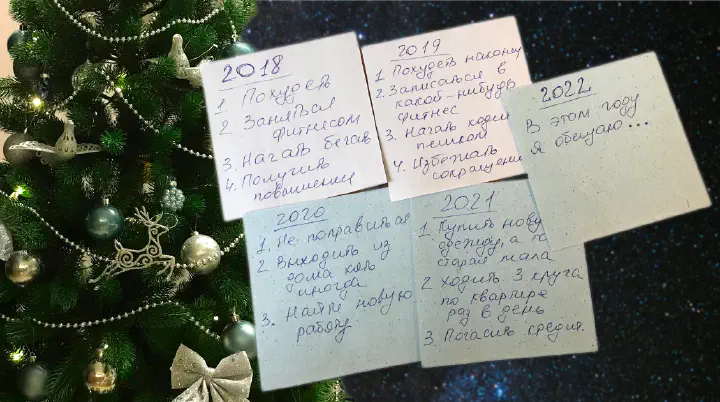 2018
1. Похудеть
2 Заняться
фитнесом
3. Начать бегать
4. Получить
повышение
2019
1. Похудеть наконец
2. Записаться в
какой-нибудь
фитнес
3. Начать ходить
пешком
4. Избежать
сокращения
2020
1. Не поправиться
2 Выходить из
дома хоть
иногда
3. Найти новую
работу
2021
1. Купить новую
одежду, а то
старая мала
2 Ходить 3 круга
по квартире
раз в день
3. Погасить кредит.
2022
В этом году
я обещаю...